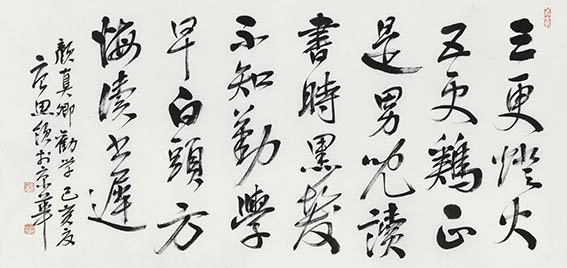 三更燈火
五更鷄正
是男兒讀
書時黑髮
不知勤學
早白頭方
悔讀书遲
顏真卿勸学己亥夏
於京華